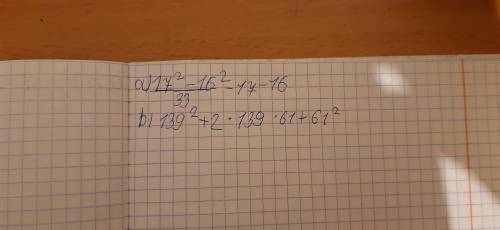 a) 17² - 16² / 33 - 17 - 16
b) 139² + 2 · 139 · 61 + 61²